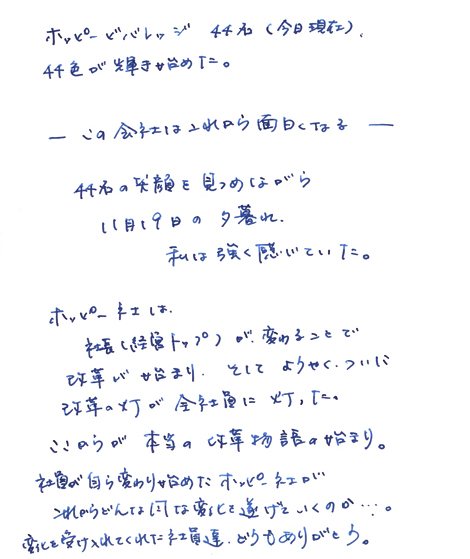 ホッピービバレッジ 44名(今日現在)、
44色が輝き始めた。
― この会社はこれから面白くなる ―
44名の笑顔を見つめながら
11月19日の夕暮れ、
私は強く感じていた。
ホッピー社は、
社長(経営トップ)が、変わることで
改革が始まり、そしてようやく、ついに
改革の灯が全社員に灯った。
ここからが本当の改革物語の始まり。
社員が自ら変わり始めたホッピー社が
これからどんな変化を遂げていくのか…。
変化を受け入れてくれた社員達、どうもありがとう。